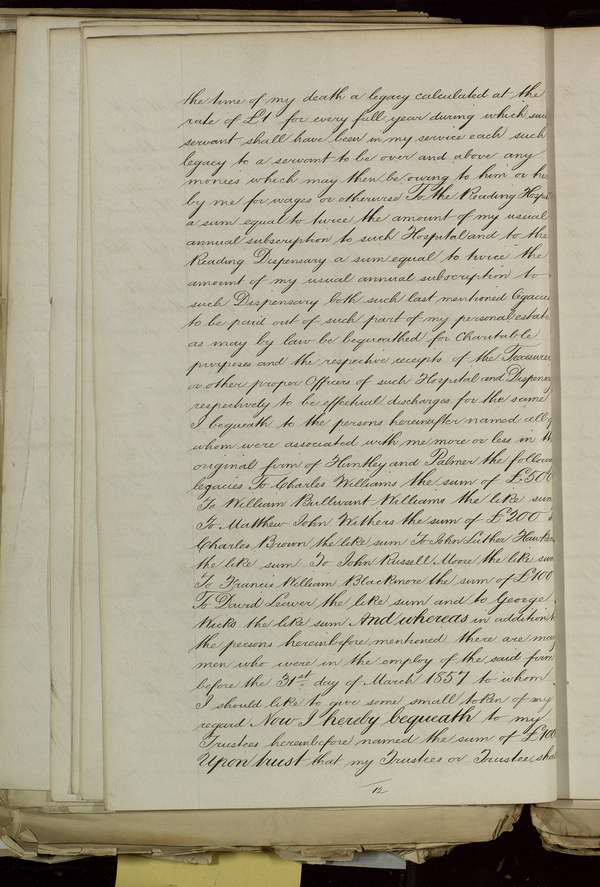 the time of my death a legacy calculated at the
rate of £1 for every full year during which such
servant shall have been in my service each such
legacy to a servant to be over and above any
monies which may then be owing to him or her
by me for wages or otherwise To the Reading Hospital
a sum equal to twice the amount of my usual
annual subscription to such Hospital and to the
Reading Dispensary a sum equal to twice the
amount of my usual annual subscription to
such Dispensary both such last mentioned legacies
to be paid out of such part of my personal estate
as may by law be bequeathed for Charitable
purposes and the respective receipts of the Treasurer
or other proper Officers of such Hospital and Dispensary
respectively to be effectual discharges for the same
I bequeath to the persons hereinafter named all of
whom were associated with me more or less in the
original firm of Huntley and Palmer the following
legacies To Charles Williams the sum of £500
To William Bullivant Williams the like sum
To Matthew John Withers the sum of £200
Charles Brown the like sum To John Luther
the like sum To John Russell Moore the like sum
To Francis William Blackmore the sum of £100
To David Leaver the like sum and to George
Wicks the like sum And whereas in addition to
the persons hereinbefore mentioned there are many
men who were in the employ of the said firm
before the 31st day of March 1857 to whom
I should like to give some small token of my
regard Now I hereby bequeath to my
Trustees hereinbefore named the sum of
Upon trust that my Trustees or Trustee shall
12